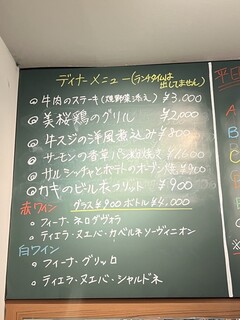 ディナーメニュー(ランチタイムは出してません)
牛肉のステーキ(焼野菜添え) ¥3,000
美桜鶏のグリル ¥2,000
牛スジの洋風煮込み
サーモンの香草パン粉焼き
サルシッチャとポテトのオーブン焼
カキのビール衣フリット ¥900
赤ワイン グラス¥900 ボトル¥4,000
フィーナ・ネロダヴォラ
ティエラ・ヌエバ・カベルネソーヴィニオン
白ワイン
フィーナ・グリッロ
ティエラ・ヌエバ・シャルドネ
平日